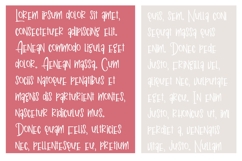 Lorem ipsum dolor sit amet,
consectetuer adipiscing elit.
Aenean commodo ligula eget
dolor. Aenean massa. Cum
sociis natoque penatibus et
magnis dis parturient montes,
nascetur ridiculus mus.
Donec quam felis, ultricies
nec, pellentesque eu, pretium
quis, sem. Nulla con
sequat massa quis
enim. Donec pede
justo, fringilla vel,
aliquet nec, vulputate
eget, arcu. In enim
justo, rhoncus ut, im
perdiet a, venenatis
vitae, justo. Nullam